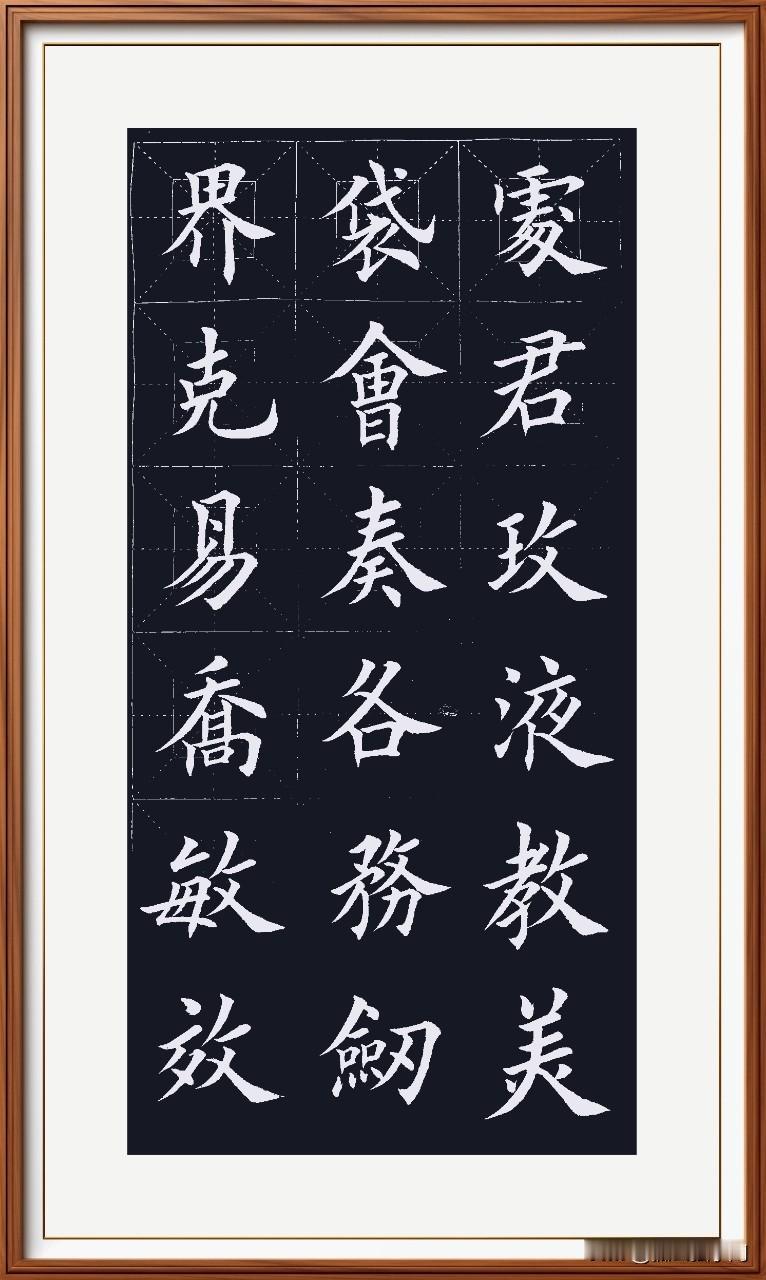 君玫液教美
袋會奏各務劒
界克易喬敏效